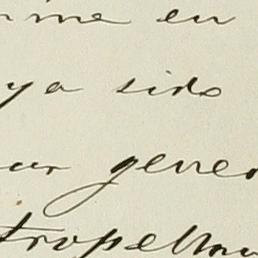 me en
ya sido
ur gener
tropellar